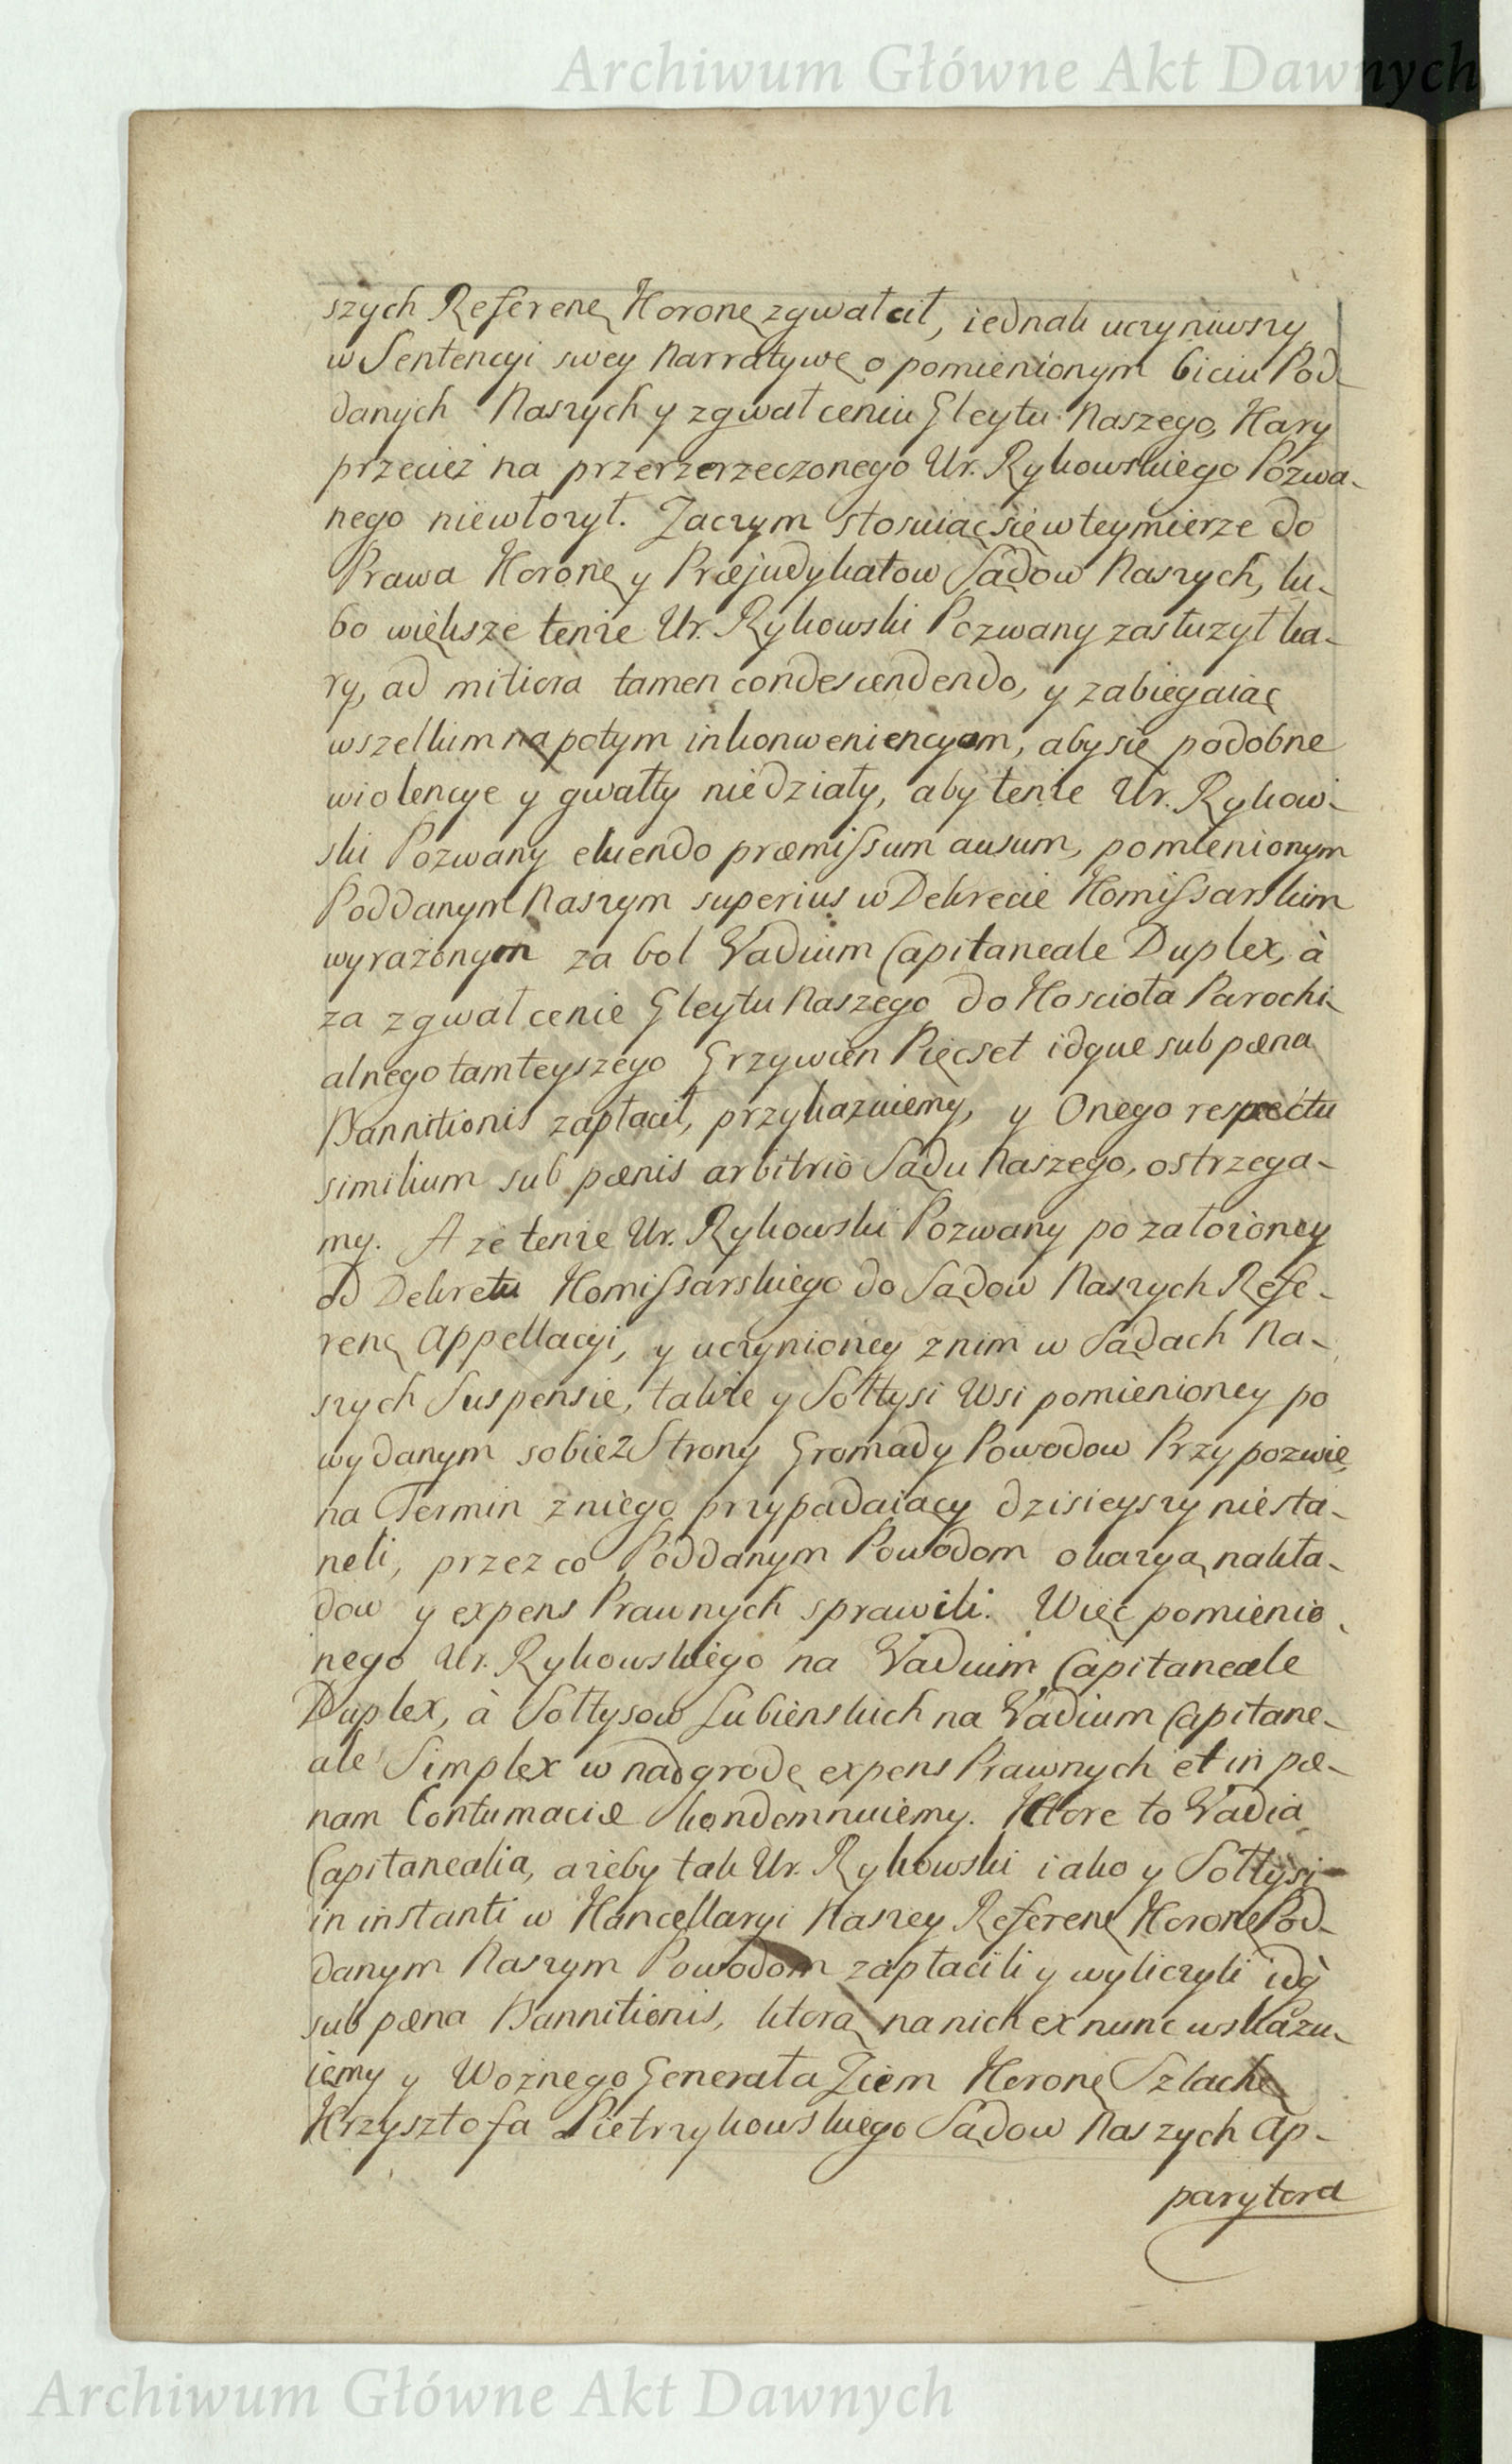 Archiwum Główne Akt Dawnych
szych Referenę Koronę zgwałcił, iednak uczyniwszy
w Sentencyi swey Narratywę o pomienionym biciu Pod-
danych Naszych y zgwałceniu Gleytu Naszego, Kary
przecież na przerzerzeczonego Ur. Rykowskiego Pozwa-
nego niewłożył. Zaczym stosuiąc się w tey mierze do
Prawa Koronę y Præjudykatow Sądow Naszych, lu-
bo większe tenże Ur. Rykowski Pozwany zasłużył ka-
ry, ad mitiora tamen condescendendo, y zabiegaiąc
wszelkim napotym inkonweniencyom, aby się podobne
wiolencye y gwałty niedziały, aby tenże Ur. Rykow-
ski Pozwany eluendo præmissum ausum, pomienionym
Poddanym Naszym superius w Dekrecie Komissarskim
wyrażonym za bol Vadium Capitaneale Duplex, à
za zgwałcenie Gleytu Naszego do Kościoła Parochi-
alnego tamteyszego Grzywien Pięcset idque sub pæna
Bannitionis zapłacił, przykazuiemy, y Onego respectu
similium sub pænis arbitrio Sądu Naszego, ostrzega-
my. A że tenże Ur. Rykowski Pozwany po założoney
od Dekretu Komissarskiego do Sądow Naszych Refe-
renę Appellacyi, y uczynioney z nim w Sądach Na-
szych Suspensie, także y Sołtysi Wsi pomienioney po
wydanym sobie z Strony Gromady Powodow Przypozwie,
na Termin z niego przypadaiący dzisieyszy niesta-
neli, przez co Poddanym Powodom okazyą nakła-
dow y expens Prawnych sprawili. Więc pomienio-
nego Ur. Rykowskiego na Vadium Capitaneale
Duplex, à Sołtysow Lubienskich na Vadium Capitane-
ale Simplex w nadgrodę expens Prawnych et in pæ-
nam Contumaciæ kondemnuiemy. Ktore to Vadia
Capitanealia, ażeby tak Ur. Rykowski iako y Sołtysi
in instanti w Kancellaryi Naszey Referenę Koronę Pod-
danym Naszym Powodom zapłacili y wyliczyli idq̃
sub pæna Bannitionis, ktorą na nich ex nunc wskazu-
iemy y Woznego Generała Ziem Koronę Szlachę
Krzysztofa Pietrzykowskiego Sądow Naszych Ap-
parytora
Archiwum Główne Akt Dawnych